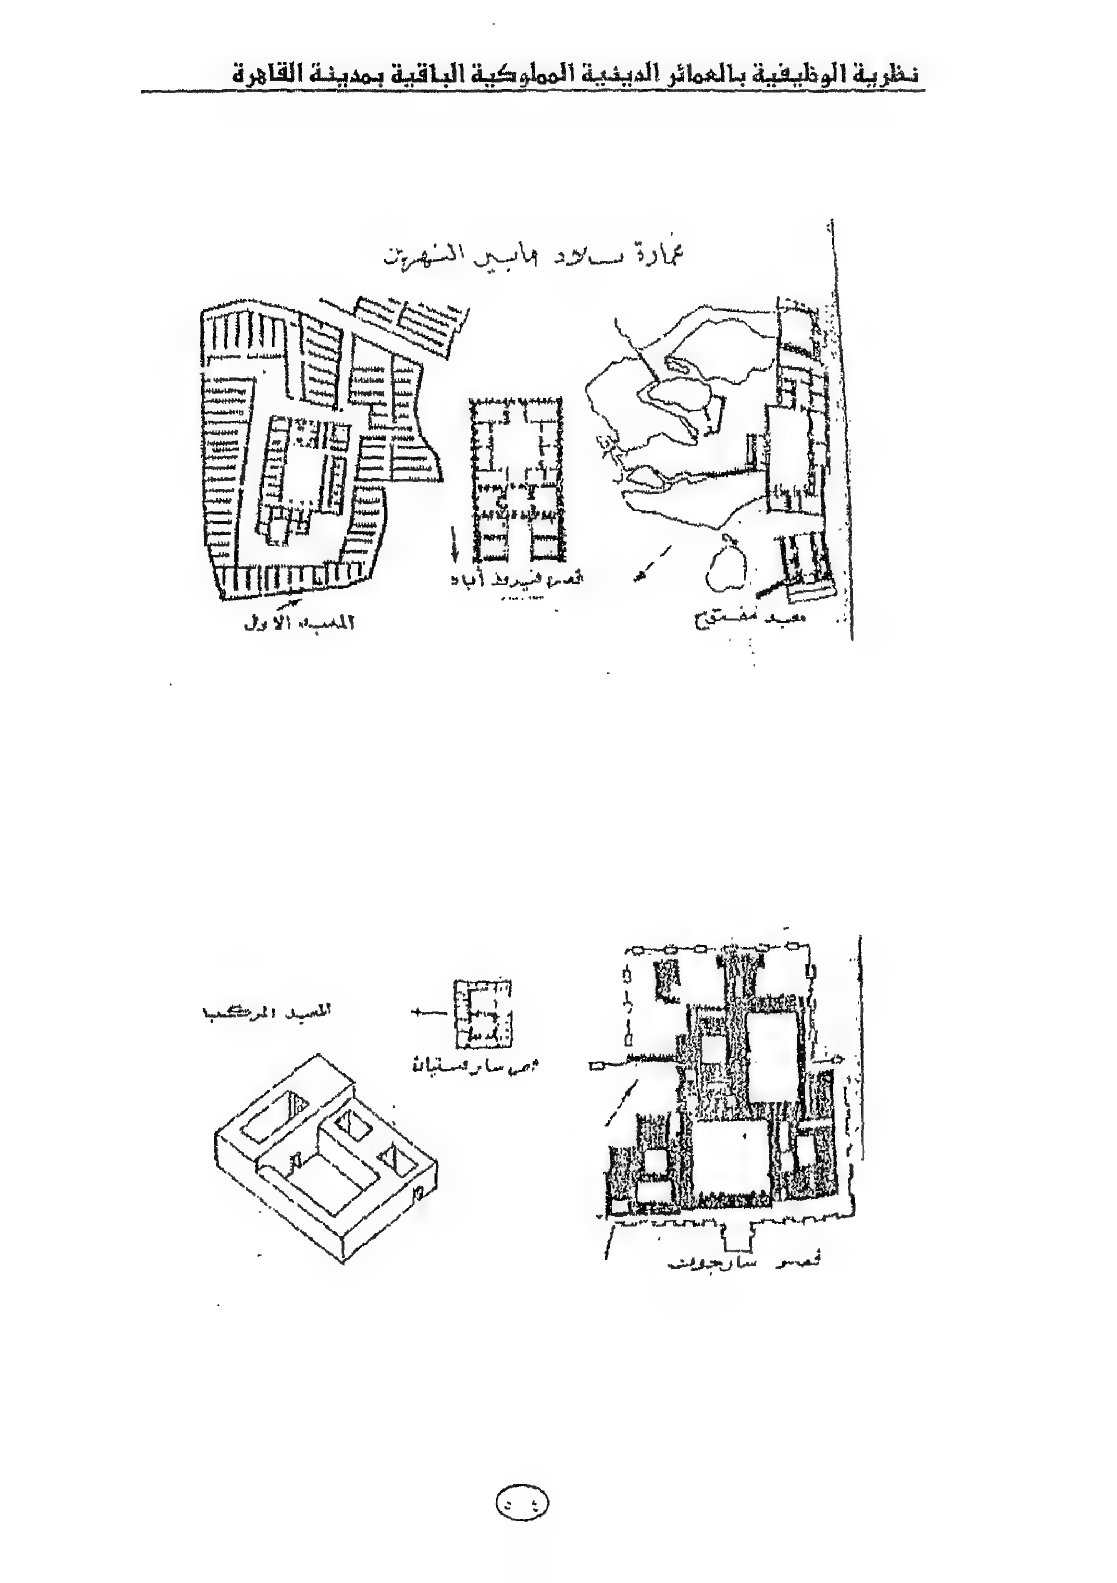 نظرية الوظيفية بالعمائر الدينية المملوكية الباقية بمدينة القاهرة
عمارة بلاد مابين النهرين
قصر فيروز أباد
المعبد الأول
معبد مفتوح
المعبد المركب
قصر سارفستان
قصر سارجون